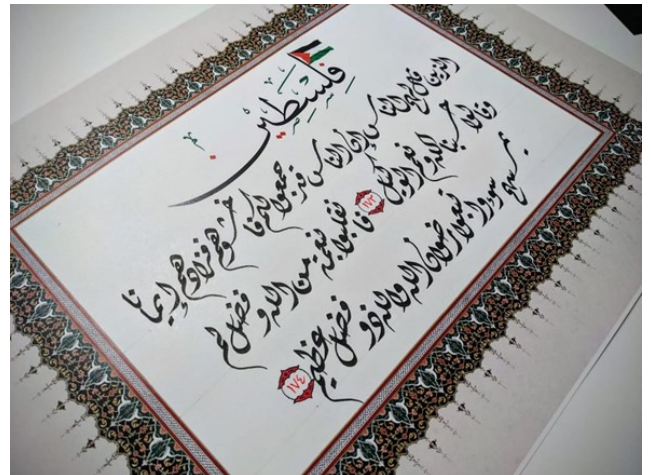 فِلسطين
الذين قال لهم الناس إن الناس قد جمعوا لكم فاخشوهم فزادهم إيمانا
وقالوا حسبنا الله ونعم الوكيل ١٧٣ فانقلبوا بنعمة من الله وفضل لم
يمسسهم سوء واتبعوا رضوان الله والله ذو فضل عظيم ١٧٤